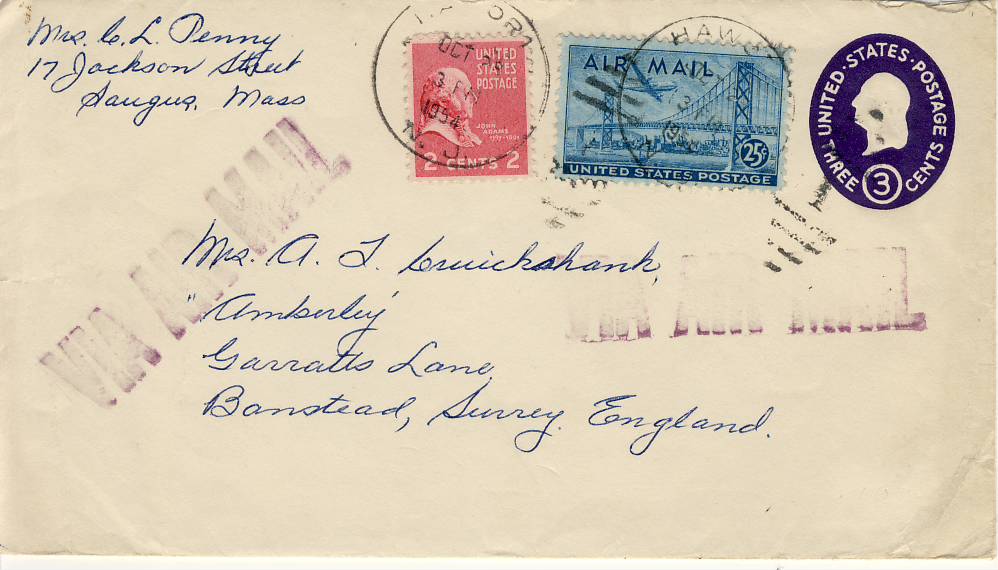 Mrs. C. L. Penny
17 Jackson Street
Saugus, Mass
OCT
1954
N. J.
UNITED
STATES
POSTAGE
JOHN
ADAMS
2 CENTS 2
HAW
AIR MAIL
25¢
UNITED STATES POSTAGE
UNITED·STATES·POSTAGE
THREE 3 CENTS
VIA AIR MAIL
Mrs. A. T. Cruickshank,
"Amberley"
Garratts Lane,
Banstead, Surrey. England.